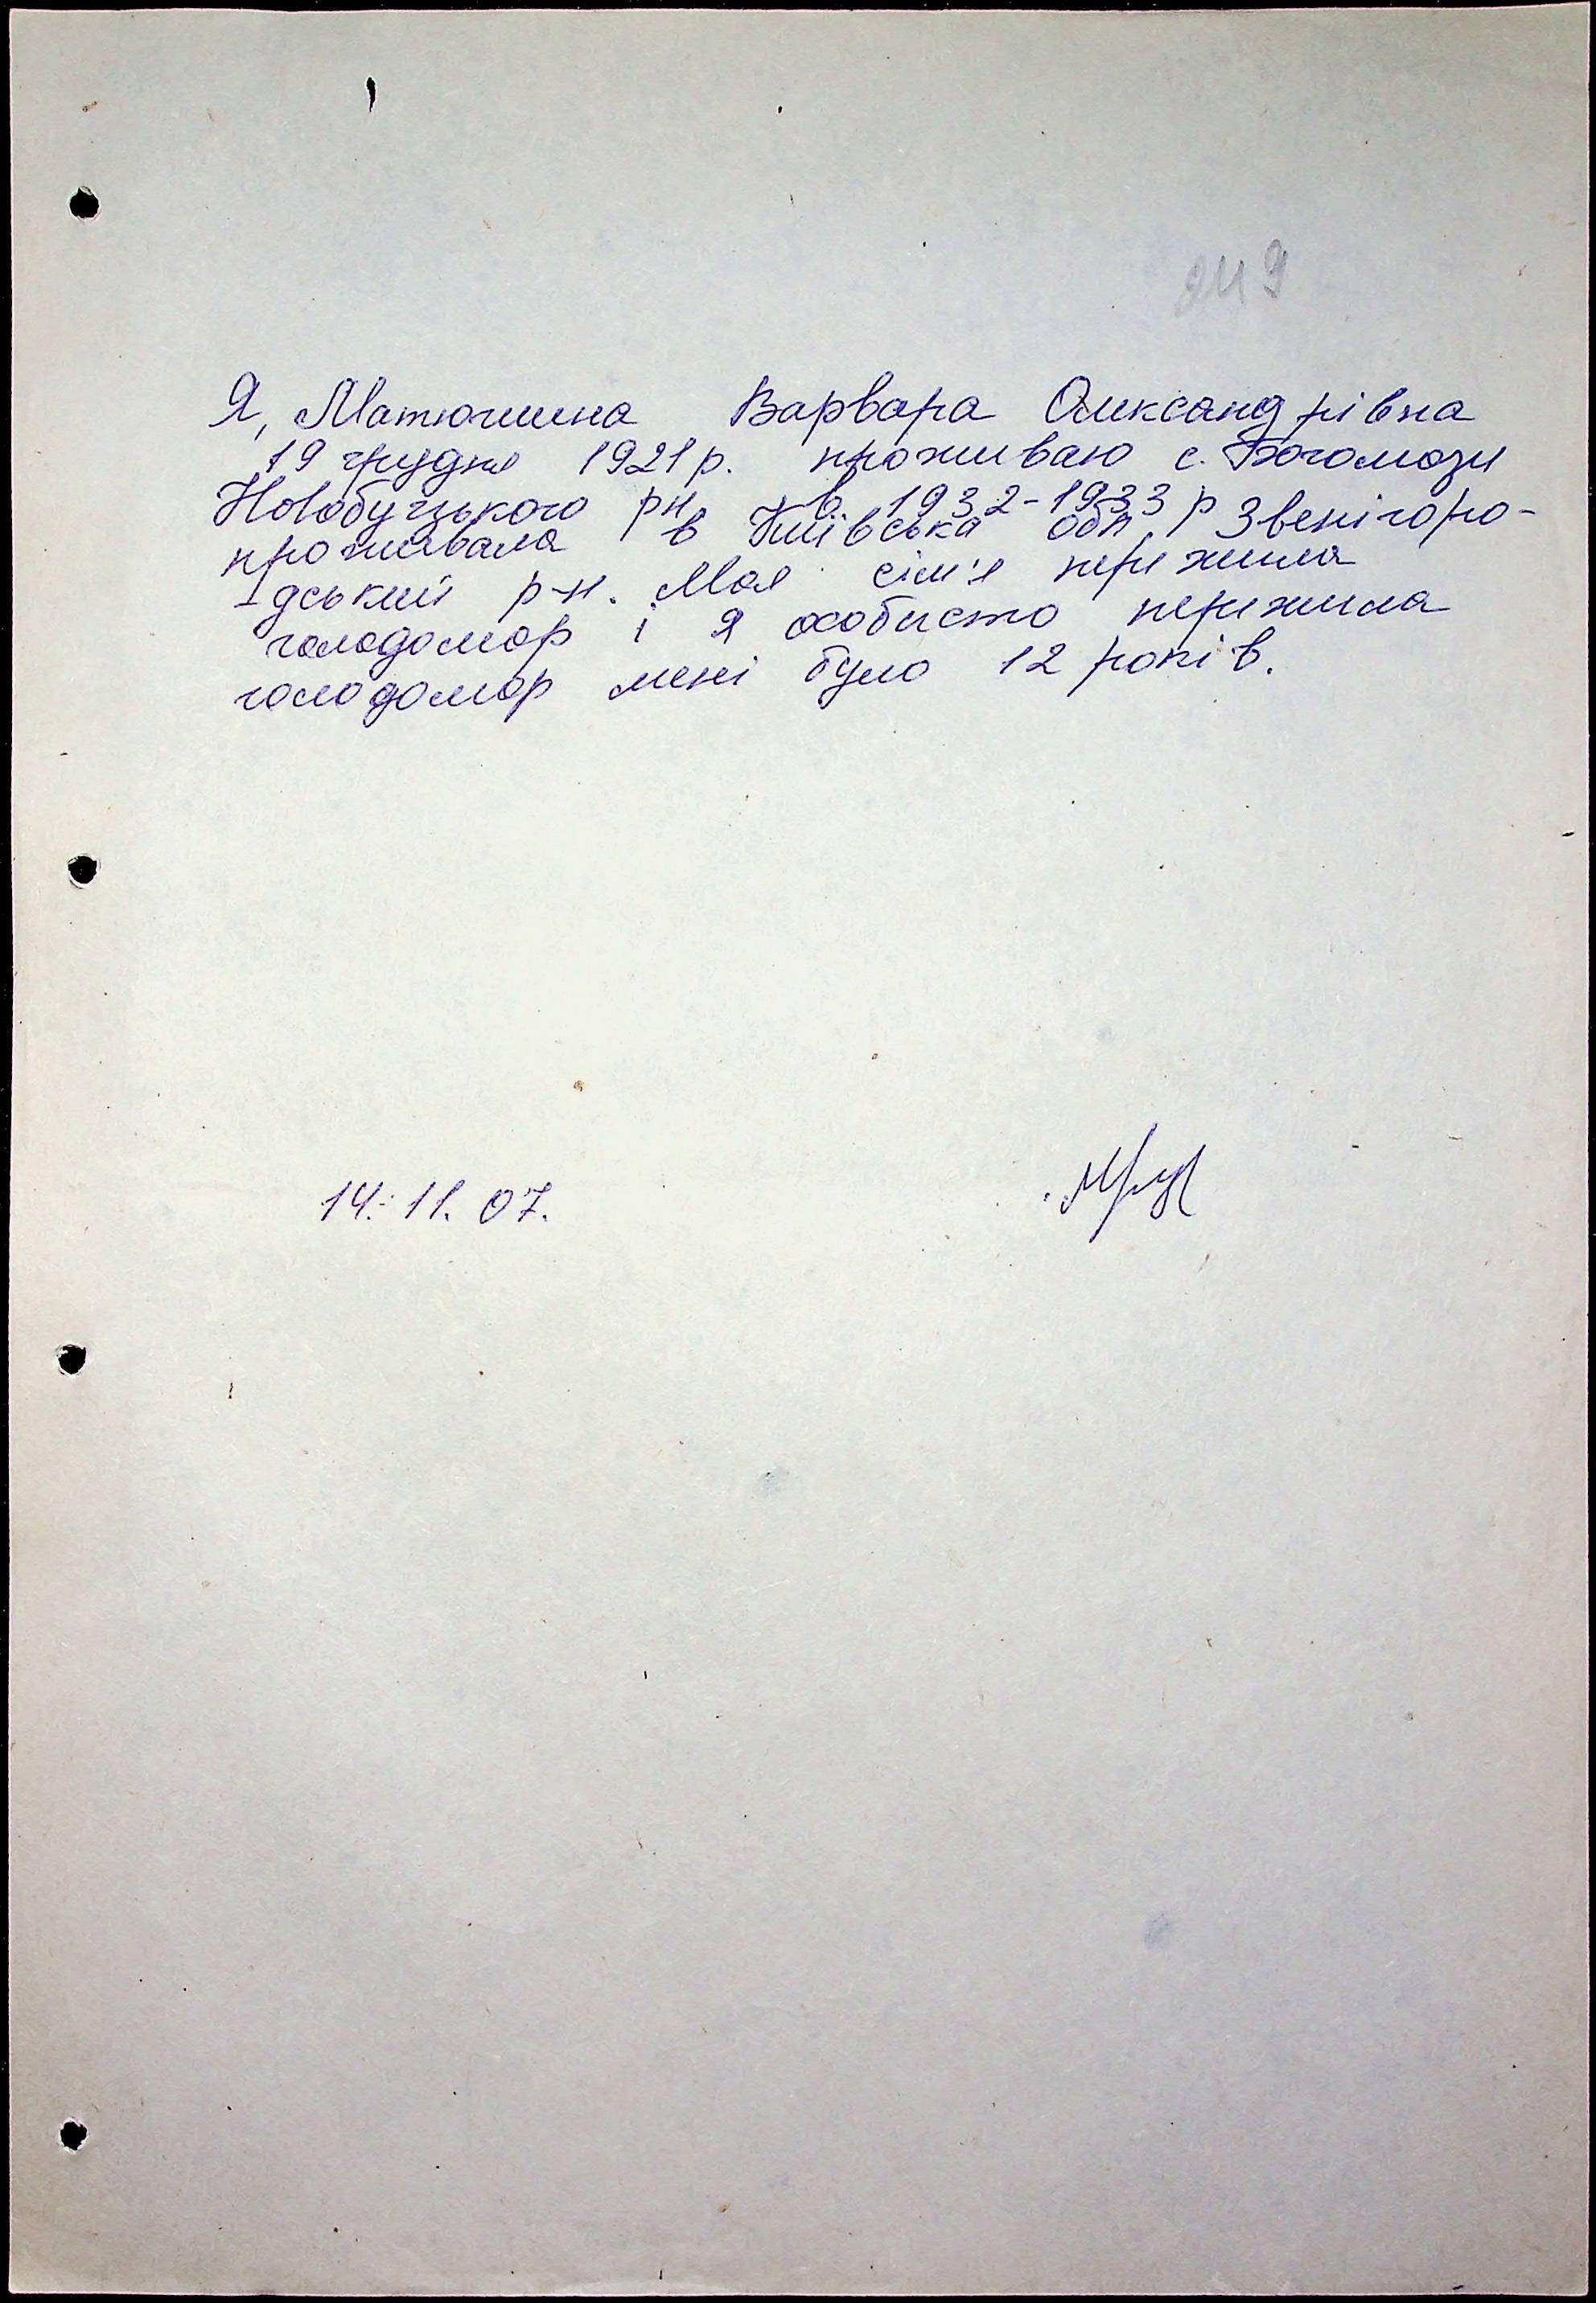 249
Я, Матюшина Варвара Олександрівна
19 грудня 1921 р. проживаю с. Богомази
Новобузького рн, в 1932-1933 р
проживала в Київська обл, Звенігоро-
дський р-н. Моя сім'я пережила
голодомор і я особисто пережила
голодомор мені було 12 років.
14. 11. 07.